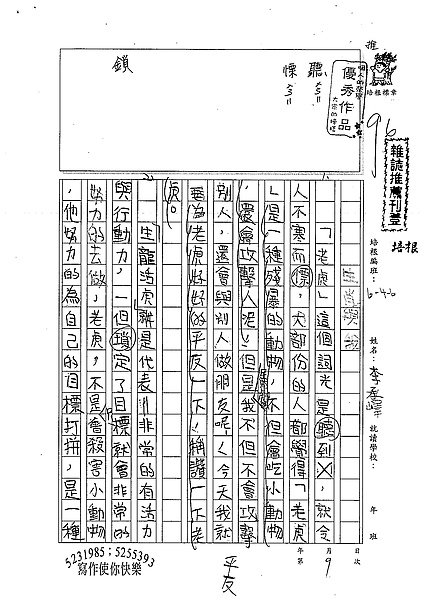 推
96
雜誌推薦刊登
培根
個人的榮譽
優秀作品
大家的榜樣
培根標章
聽
慄
鎖
培根編班：
6-4-6
姓名：
李
就讀學校：
年 班
日次
月
9
年第
生肖與我
「老虎」這個詞光是聽到，就令
人不寒而慄，大部份的人都覺得「老虎
」是一種殘暴的動物，不但會吃小動物
，還會攻擊人呢！但是我不但不會攻擊
別人，還會與別人做朋友呢！今天我就
要為老虎好好的平反一下！稱讚一下老
虎。
生龍活虎就是代表非常的有活力
與行動力，一但鎖定了目標就會非常的
努力的去做，老虎，不是會殺害小動物
，他努力的為自己的目標打拼，是一種
平反
5231985；5255393
寫作使你快樂